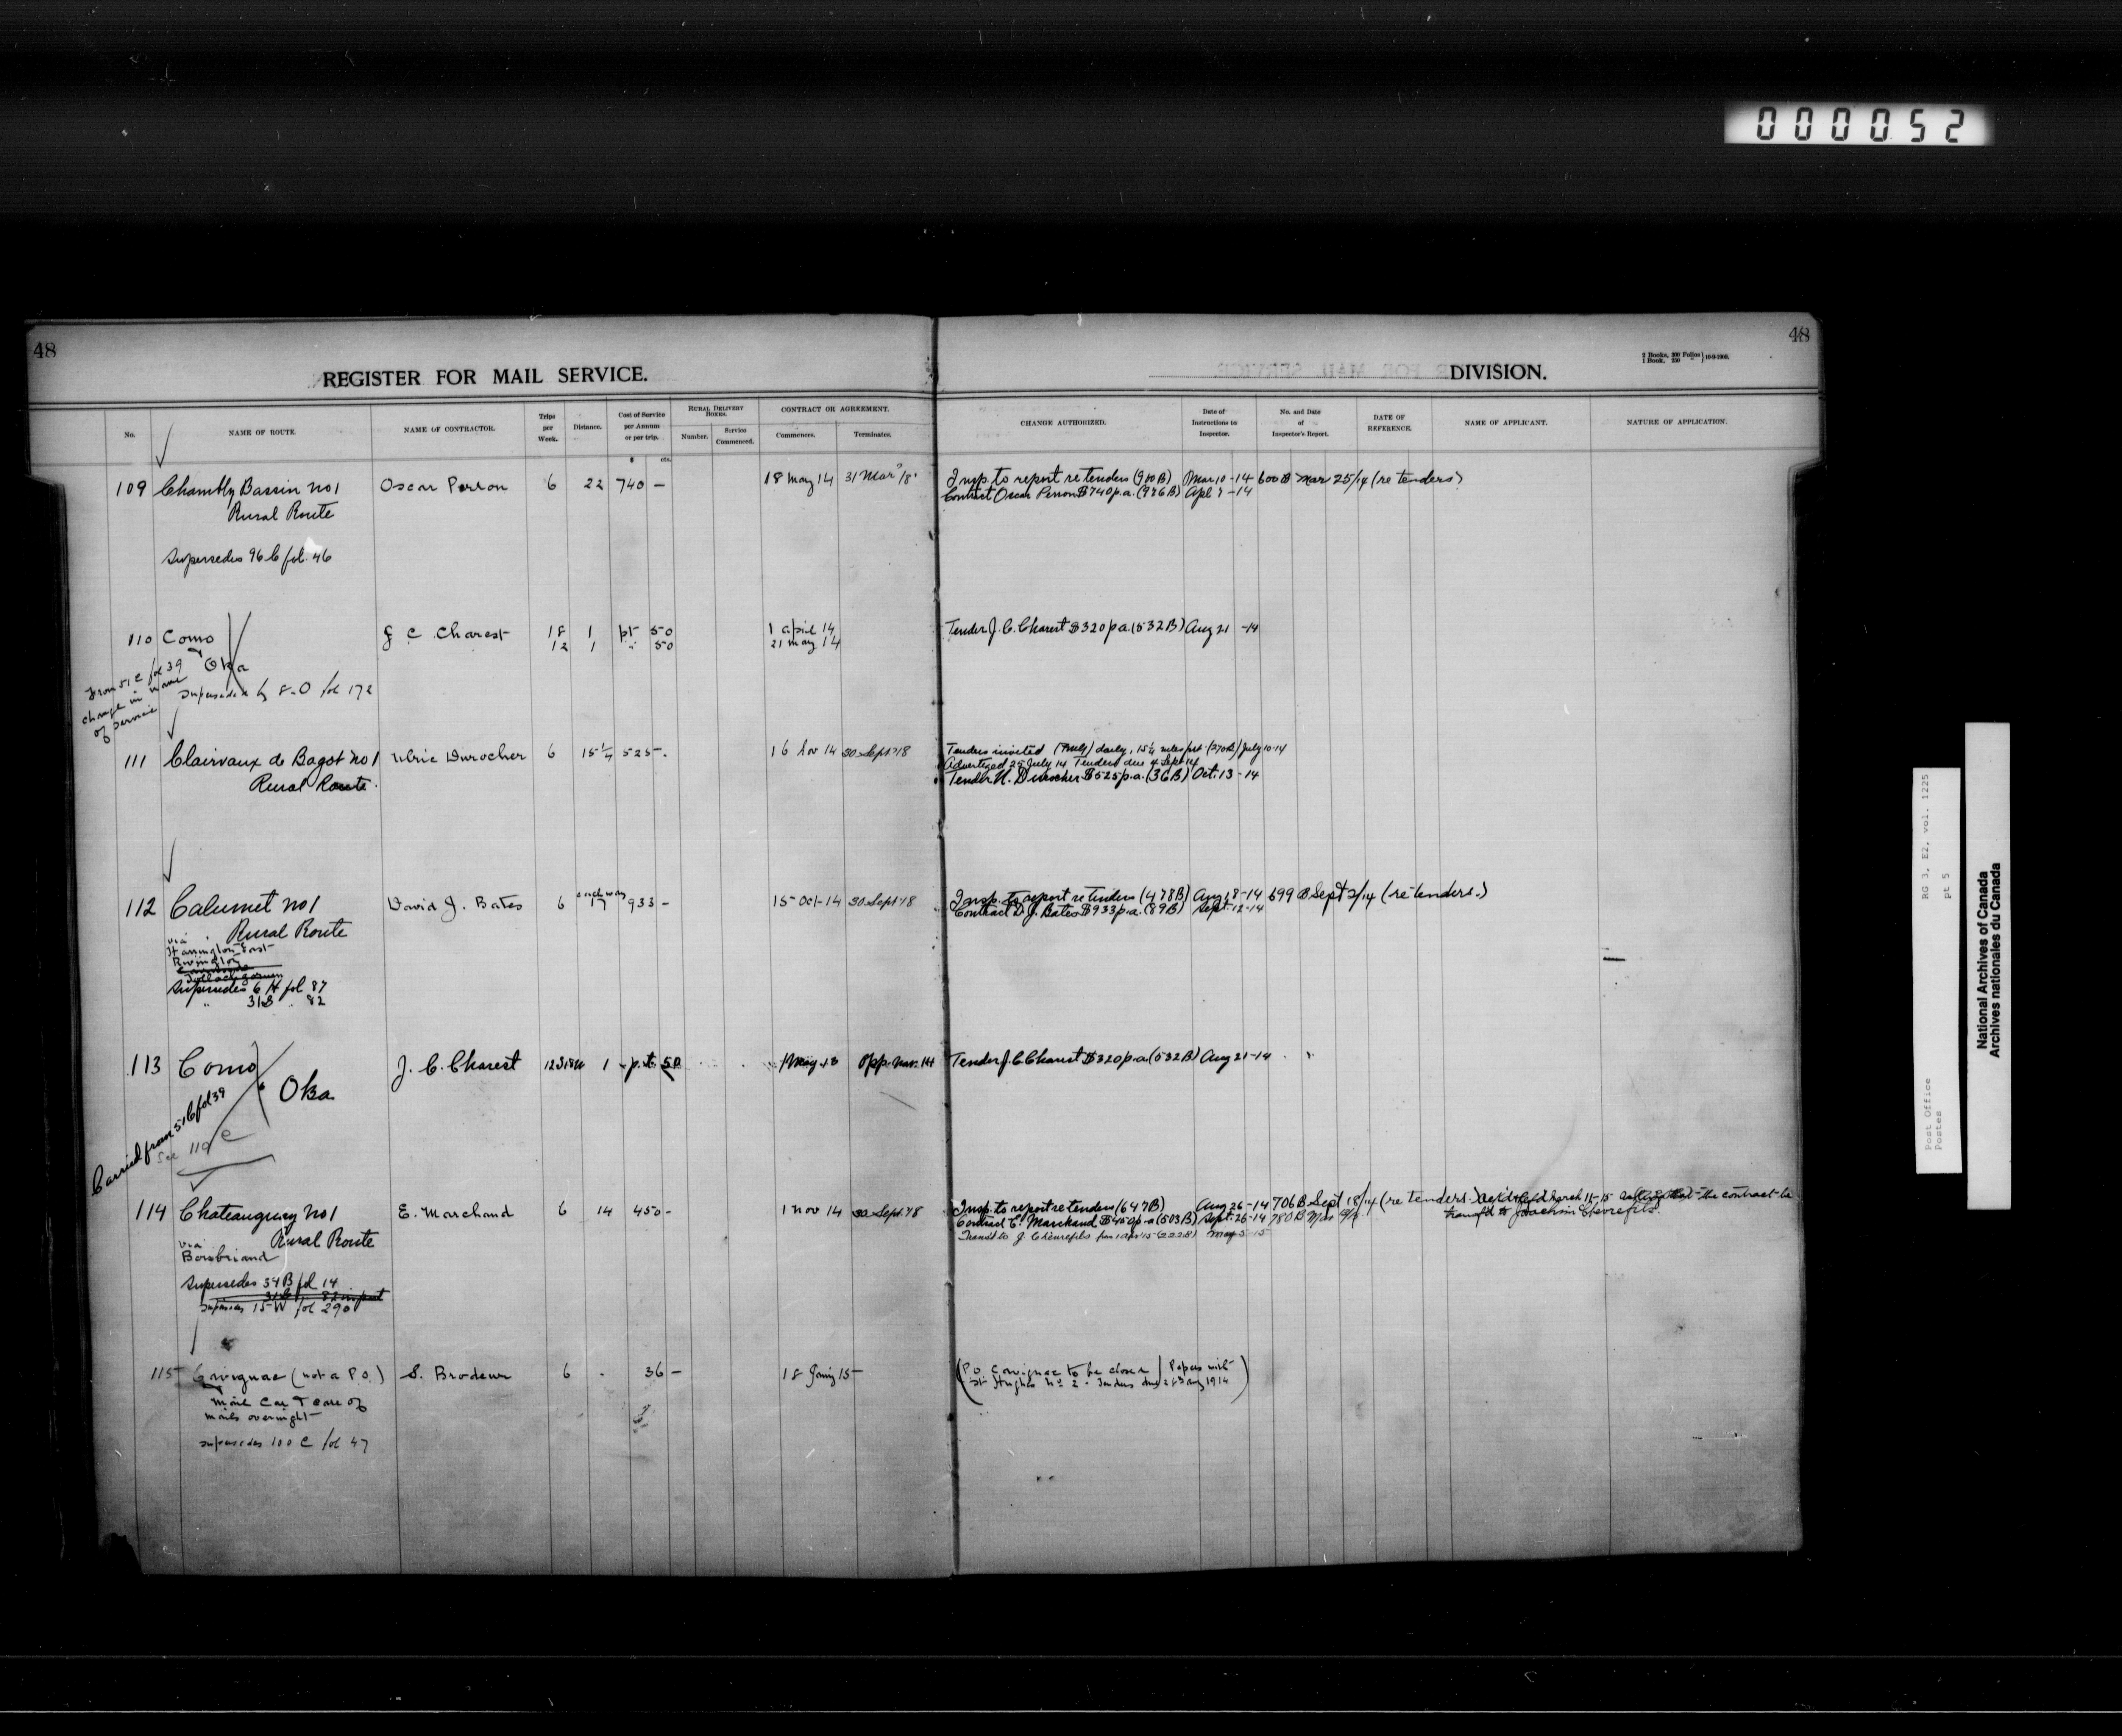 000052
48
48
2 Books, 300 Folios
1 Book, 250 " } 10-9-1908.
REGISTER FOR MAIL SERVICE.
DIVISION.
No.
NAME OF ROUTE.
NAME OF CONTRACTOR.
Trips per Week.
Distance.
Cost of Service per Annum or per trip.
RURAL DELIVERY BOXES.
Number.
Service Commenced.
CONTRACT OR AGREEMENT.
Commences.
Terminates.
CHANGE AUTHORIZED.
Date of Instructions to Inspector.
No. and Date of Inspector's Report.
DATE OF REFERENCE.
NAME OF APPLICANT.
NATURE OF APPLICATION.
$ cts.
109 Chambly Bassin No 1 Oscar Perron 6 22 740 — 18 May 14 31 Mar '18 Insp. to report re tenders (900B) Mar 10-14 600 B Mar 25/14 (re tenders)
Rural Route Contract Oscar Perron $740 p.a. (986B) Apl 7-14
Supersedes 96 C fol. 46
110 Como J C Charest 18 1 pt 50 1 April 14 Tender J. C. Charest $320 p.a. (532B) Aug 21-14
12 1 " 50 21 May 14
& Oka
From 51 C fol 39
change in name
of service
Superseded by 8-O fol 172
111 Clairvaux de Bagot No 1 Ulric Durocher 6 15¼ 525-. 16 Nov 14 30 Sept '18 Tenders invited daily, 15¼ miles (270B) July 10-14
Rural Route. Advertized 25 July 14 Tenders due 4 Sept 14
Tender U. Durocher $525 p.a. (36B) Oct. 13-14
112 Calumet No 1 David J. Bates 6 each way 17 933 - 15-Oct-14 30 Sept '18 Insp. to report re tenders (478B) Aug 18-14 699 B Sept 2/14 (re tenders.)
Rural Route Contract D. J. Bates $933 p.a. (89B) Sept. 12-14
via
Harrington East
Rivington
Supersedes 6 H fol 87
" 31B " 82
113 Como J. C. Charest 12S18W 1 p.t. 50 1 May 13 Opp. Nov. 14 Tender J. C. Charest $320 p.a. (532B) Aug 21-14
& Oka
Carried from 51 C fol 39
See 110 C
114 Chateauguay No 1 E. Marchand 6 14 450 - 1 Nov 14 30 Sept. '18 Insp. to report re tenders (647B) Aug 26-14 706 B Sept 18/14 (re tenders.) March 11-15 that the contract be
Rural Route Contract E. Marchand $450 p.a. (503B) Sept. 26-14 780 B transf'd to Joachim Chevrefils.
via Transf'd to J Chevrefils from 1 Apr 15 (222B) May 5-15
Bombriand
Supersedes 34B fol 14
Supersedes 15-W fol 290
115 Corvignac (not a P.O.) S. Brodeur 6 36 - 18 Jany 15 (P.O. Corvignac to be closed) Papers with
& Mail Car & care of St Hughes No 2. Tenders due 28 Aug 1914)
mails overnight
Supersedes 100 C fol 47
RG 3, E2, vol. 1225
pt 5
Post Office
Postes
National Archives of Canada
Archives nationales du Canada